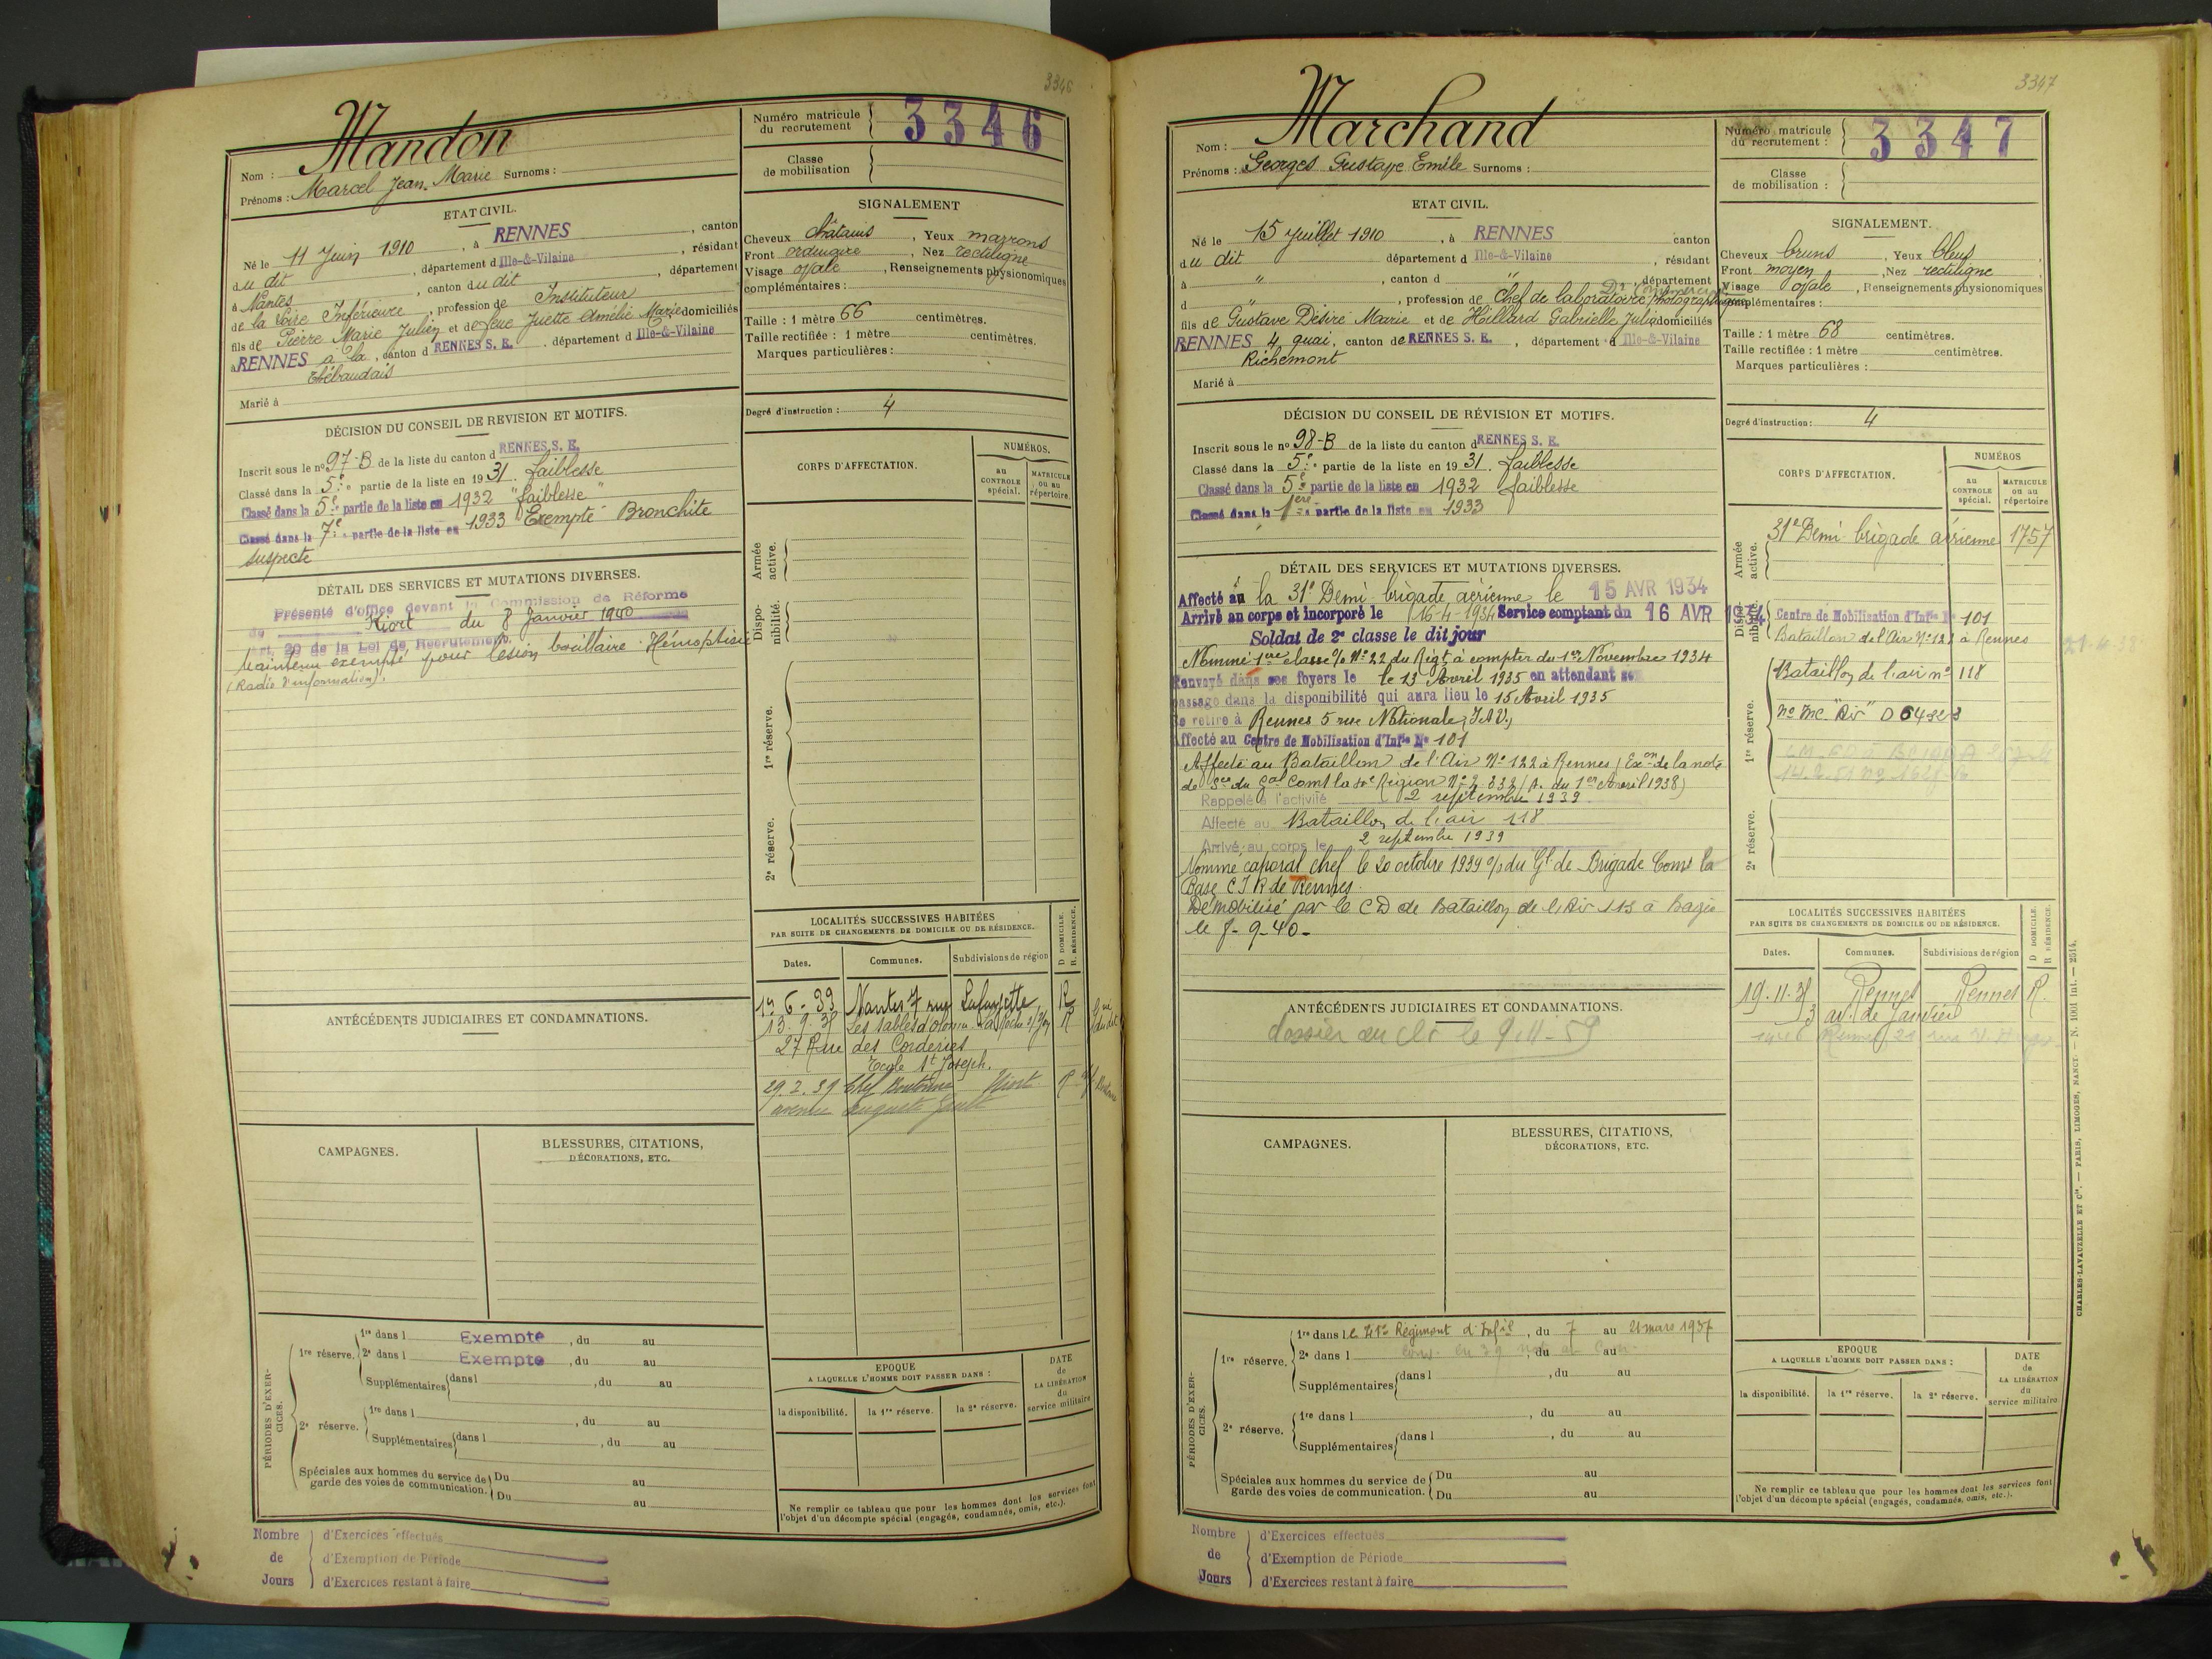 3346
Nom : Mandon
Prénoms : Marcel Jean Marie Surnoms :
Numéro matricule du recrutement 3346
Classe de mobilisation
ETAT CIVIL.
Né le 11 Juin 1910, à RENNES, canton
du dit, département d Ille-&-Vilaine, résidant
à Nantes, canton du dit, département
de la Loire Inférieure, profession de Instituteur
fils de Pierre Marie Julien et de feue Juette Amélie Marie domiciliés
à RENNES à la, canton d RENNES S. E., département d Ille-&-Vilaine
Thébaudais
Marié à
SIGNALEMENT
Cheveux châtains, Yeux marrons
Front ordinaire, Nez rectiligne
Visage ovale, Renseignements physionomiques
complémentaires :
Taille : 1 mètre 66 centimètres.
Taille rectifiée : 1 mètre centimètres.
Marques particulières :
Degré d'instruction : 4
DÉCISION DU CONSEIL DE REVISION ET MOTIFS.
Inscrit sous le no 97-B de la liste du canton d RENNES S. E.
Classé dans la 5e partie de la liste en 1931. faiblesse
Classé dans la 5e partie de la liste en 1932 "faiblesse"
Classé dans la 7e partie de la liste en 1933 Exempté Bronchite
suspecte
DÉTAIL DES SERVICES ET MUTATIONS DIVERSES.
Présenté d'office devant la Commission de Réforme
de Niort du 8 Janvier 1940
art. 20 de la Loi de Recrutement.
Maintenu exempté pour lésion bacillaire. Hémoptisie
(Radio d'information).
CORPS D'AFFECTATION.
NUMÉROS.
au CONTROLE spécial.
MATRICULE ou au répertoire.
Armée active.
Disponibilité.
1re réserve.
2e réserve.
LOCALITÉS SUCCESSIVES HABITÉES
PAR SUITE DE CHANGEMENTS DE DOMICILE OU DE RÉSIDENCE.
Dates. Communes. Subdivisions de région D. DOMICILE. R. RÉSIDENCE.
19-6-33 Nantes 7 rue Lafayette R
13.9.35 Les Sables d'Olonne La Roche s/Yon R
27 Rue des Corderies
Ecole St Joseph.
29.2.39 Chef Boutonne Niort R
avenue
ANTÉCÉDENTS JUDICIAIRES ET CONDAMNATIONS.
CAMPAGNES.
BLESSURES, CITATIONS,
DÉCORATIONS, ETC.
PÉRIODES D'EXERCICES.
1re réserve. 1re dans l Exempté, du au
2e dans l Exempté, du au
Supplémentaires dans l, du au
2e réserve. 1re dans l, du au
Supplémentaires dans l, du au
Spéciales aux hommes du service de garde des voies de communication. Du au
Du au
EPOQUE
A LAQUELLE L'HOMME DOIT PASSER DANS :
la disponibilité. la 1re réserve. la 2e réserve.
DATE de LA LIBÉRATION du service militaire
Ne remplir ce tableau que pour les hommes dont les services font
l'objet d'un décompte spécial (engagés, condamnés, omis, etc.).
Nombre d'Exercices effectués
de d'Exemption de Période
Jours d'Exercices restant à faire
3347
Nom : Marchand
Prénoms : Georges Gustave Emile Surnoms :
Numéro matricule du recrutement : 3347
Classe de mobilisation :
ETAT CIVIL.
Né le 15 Juillet 1910, à RENNES canton
du dit département d Ille-&-Vilaine, résidant
à ", canton d " département
d ", profession de Chef de laboratoire photographique
fils de Gustave Désiré Marie et de Hillard Gabrielle Julie domiciliés
RENNES 4 quai, canton de RENNES S. E., département d Ille-&-Vilaine
Richemont
Marié à
SIGNALEMENT.
Cheveux bruns, Yeux bleus
Front moyen, Nez rectiligne
Visage ovale, Renseignements physionomiques
complémentaires :
Taille : 1 mètre 68 centimètres.
Taille rectifiée : 1 mètre centimètres.
Marques particulières :
Degré d'instruction : 4
DÉCISION DU CONSEIL DE RÉVISION ET MOTIFS.
Inscrit sous le no 98-B de la liste du canton d RENNES S. E.
Classé dans la 5e partie de la liste en 1931. faiblesse
Classé dans la 5e partie de la liste en 1932 faiblesse
Classé dans la 1ère partie de la liste en 1933
DÉTAIL DES SERVICES ET MUTATIONS DIVERSES.
Affecté à la 31e Demi-brigade aérienne le 15 AVR 1934
Arrivé au corps et incorporé le 16-4-1934 Service comptant du 16 AVR 1934
Soldat de 2e classe le dit jour
Nommé 1ère classe % No 22 du Régt à compter du 1er Novembre 1934
Renvoyé dans ses foyers le le 13 Avril 1935 en attendant son
passage dans la disponibilité qui aura lieu le 15 Avril 1935
Se retire à Rennes 5 rue Nationale, I.&V.
Affecté au Centre de Mobilisation d'Infie No 101
Affecté au Bataillon de l'Air No 122 à Rennes (Exon de la note
de Sce du Gal Comt la 4e Région No 2.832/A. du 1er Avril 1938)
Rappelé à l'activité 2 septembre 1939
Affecté au Bataillon de l'air 118
Arrivé au corps le 2 septembre 1939
Nommé caporal chef le 20 octobre 1939 % du Gl de Brigade Comt la
Base C I R de Rennes.
Démobilisé par le C D de Bataillon de l'Air 118 à
le 8-9-40-
CORPS D'AFFECTATION.
NUMÉROS
au CONTROLE spécial.
MATRICULE ou au répertoire
Armée active.
31e Demi-brigade aérienne 1757
Disponibilité.
Centre de Mobilisation d'Infie No 101
Bataillon de l'Air No 122 à Rennes
21-4-38
1re réserve.
Bataillon de l'air no 118
No Mle "Air"
2e réserve.
LOCALITÉS SUCCESSIVES HABITÉES
PAR SUITE DE CHANGEMENTS DE DOMICILE OU DE RÉSIDENCE.
Dates. Communes. Subdivisions de région D DOMICILE. R RÉSIDENCE.
19.11.35 Rennes Rennes R.
3 av. de Janvier
Rennes 22 rue V. Hugo
ANTÉCÉDENTS JUDICIAIRES ET CONDAMNATIONS.
dossier au le 9-11-59
CAMPAGNES.
BLESSURES, CITATIONS,
DÉCORATIONS, ETC.
PÉRIODES D'EXERCICES.
1re réserve. 1re dans le 41e Régiment d'Infie, du 7 au 21 mars 1937
2e dans l du au
Supplémentaires dans l, du au
2e réserve. 1re dans l, du au
Supplémentaires dans l, du au
Spéciales aux hommes du service de garde des voies de communication. Du au
Du au
EPOQUE
A LAQUELLE L'HOMME DOIT PASSER DANS :
la disponibilité. la 1re réserve. la 2e réserve.
DATE de LA LIBÉRATION du service militaire
Ne remplir ce tableau que pour les hommes dont les services font
l'objet d'un décompte spécial (engagés, condamnés, omis, etc.).
CHARLES-LAVAUZELLE ET Cie. — PARIS, LIMOGES, NANCY. — N. 1001 int. — 2514.
Nombre d'Exercices effectués
de d'Exemption de Période
Jours d'Exercices restant à faire